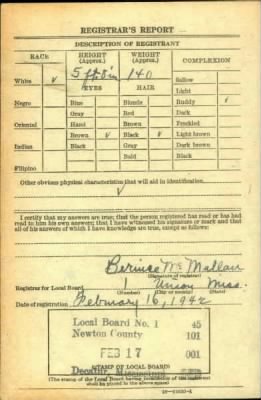 REGISTRAR'S REPORT
DESCRIPTION OF REGISTRANT
RACE HEIGHT (Approx.) WEIGHT (Approx.) COMPLEXION
5 ft 6 in 140
White ✓ EYES HAIR Sallow
Light
Negro Blue Blonde Ruddy ✓
Gray Red Dark
Oriental Hazel Brown Freckled
Brown ✓ Black ✓ Light brown
Indian Black Gray Dark brown
Bald Black
Filipino
Other obvious physical characteristics that will aid in identification
✓
I certify that my answers are true; that the person registered has read or has had
read to him his own answers; that I have witnessed his signature or mark and that
all of his answers of which I have knowledge are true, except as follows:
Bernice McMullan
(Signature of registrar)
Registrar for Local Board Union Miss.
(Number) (City or county) (State)
Date of registration February 16, 1942
Local Board No. 1 45
Newton County 101
FEB 17 001
Decatur, Mississippi
(STAMP OF LOCAL BOARD)
(The stamp of the Local Board having jurisdiction of the registrant
shall be placed in the above space)